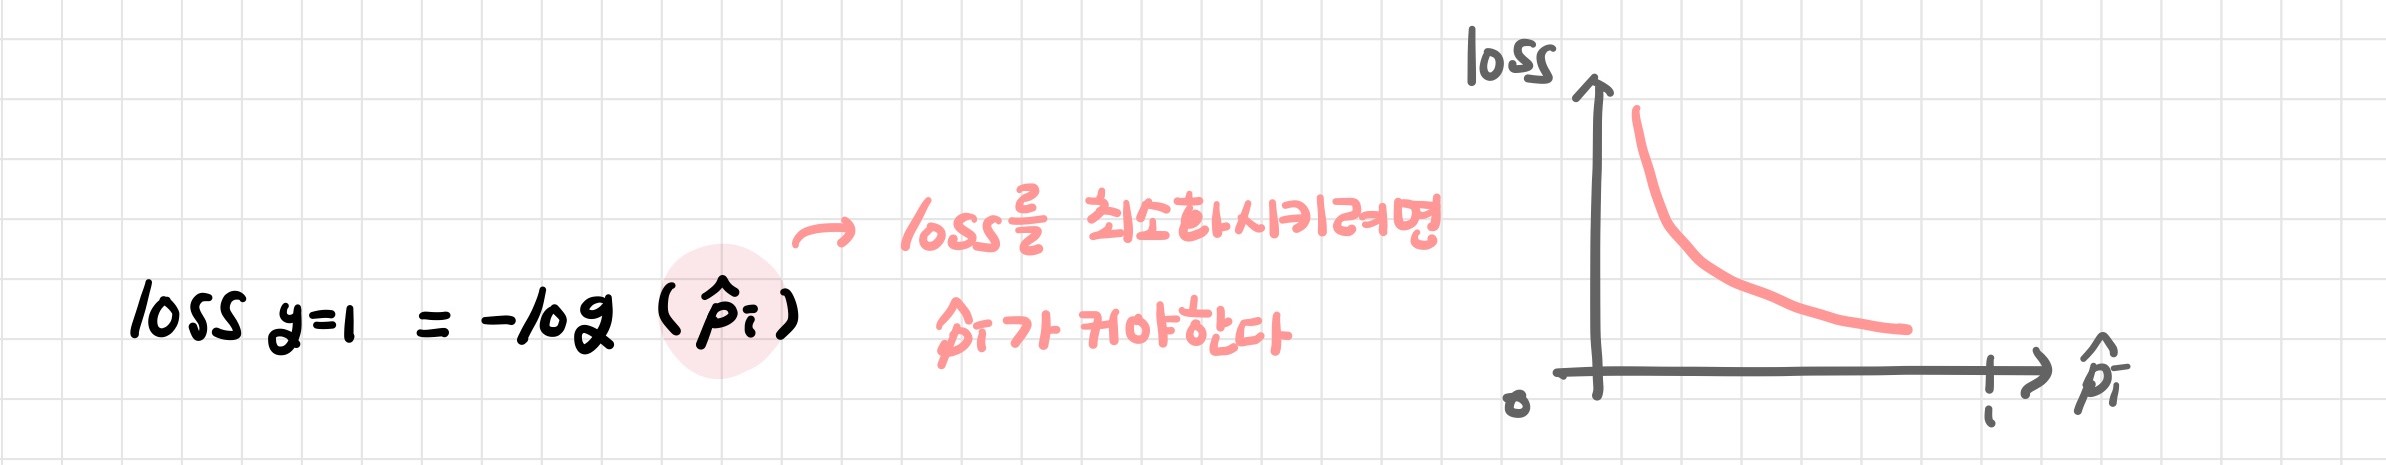 loss y=1 = -log (p̂i)
→ loss를 최소화시키려면
p̂i가 커야한다
loss
0
1
p̂i